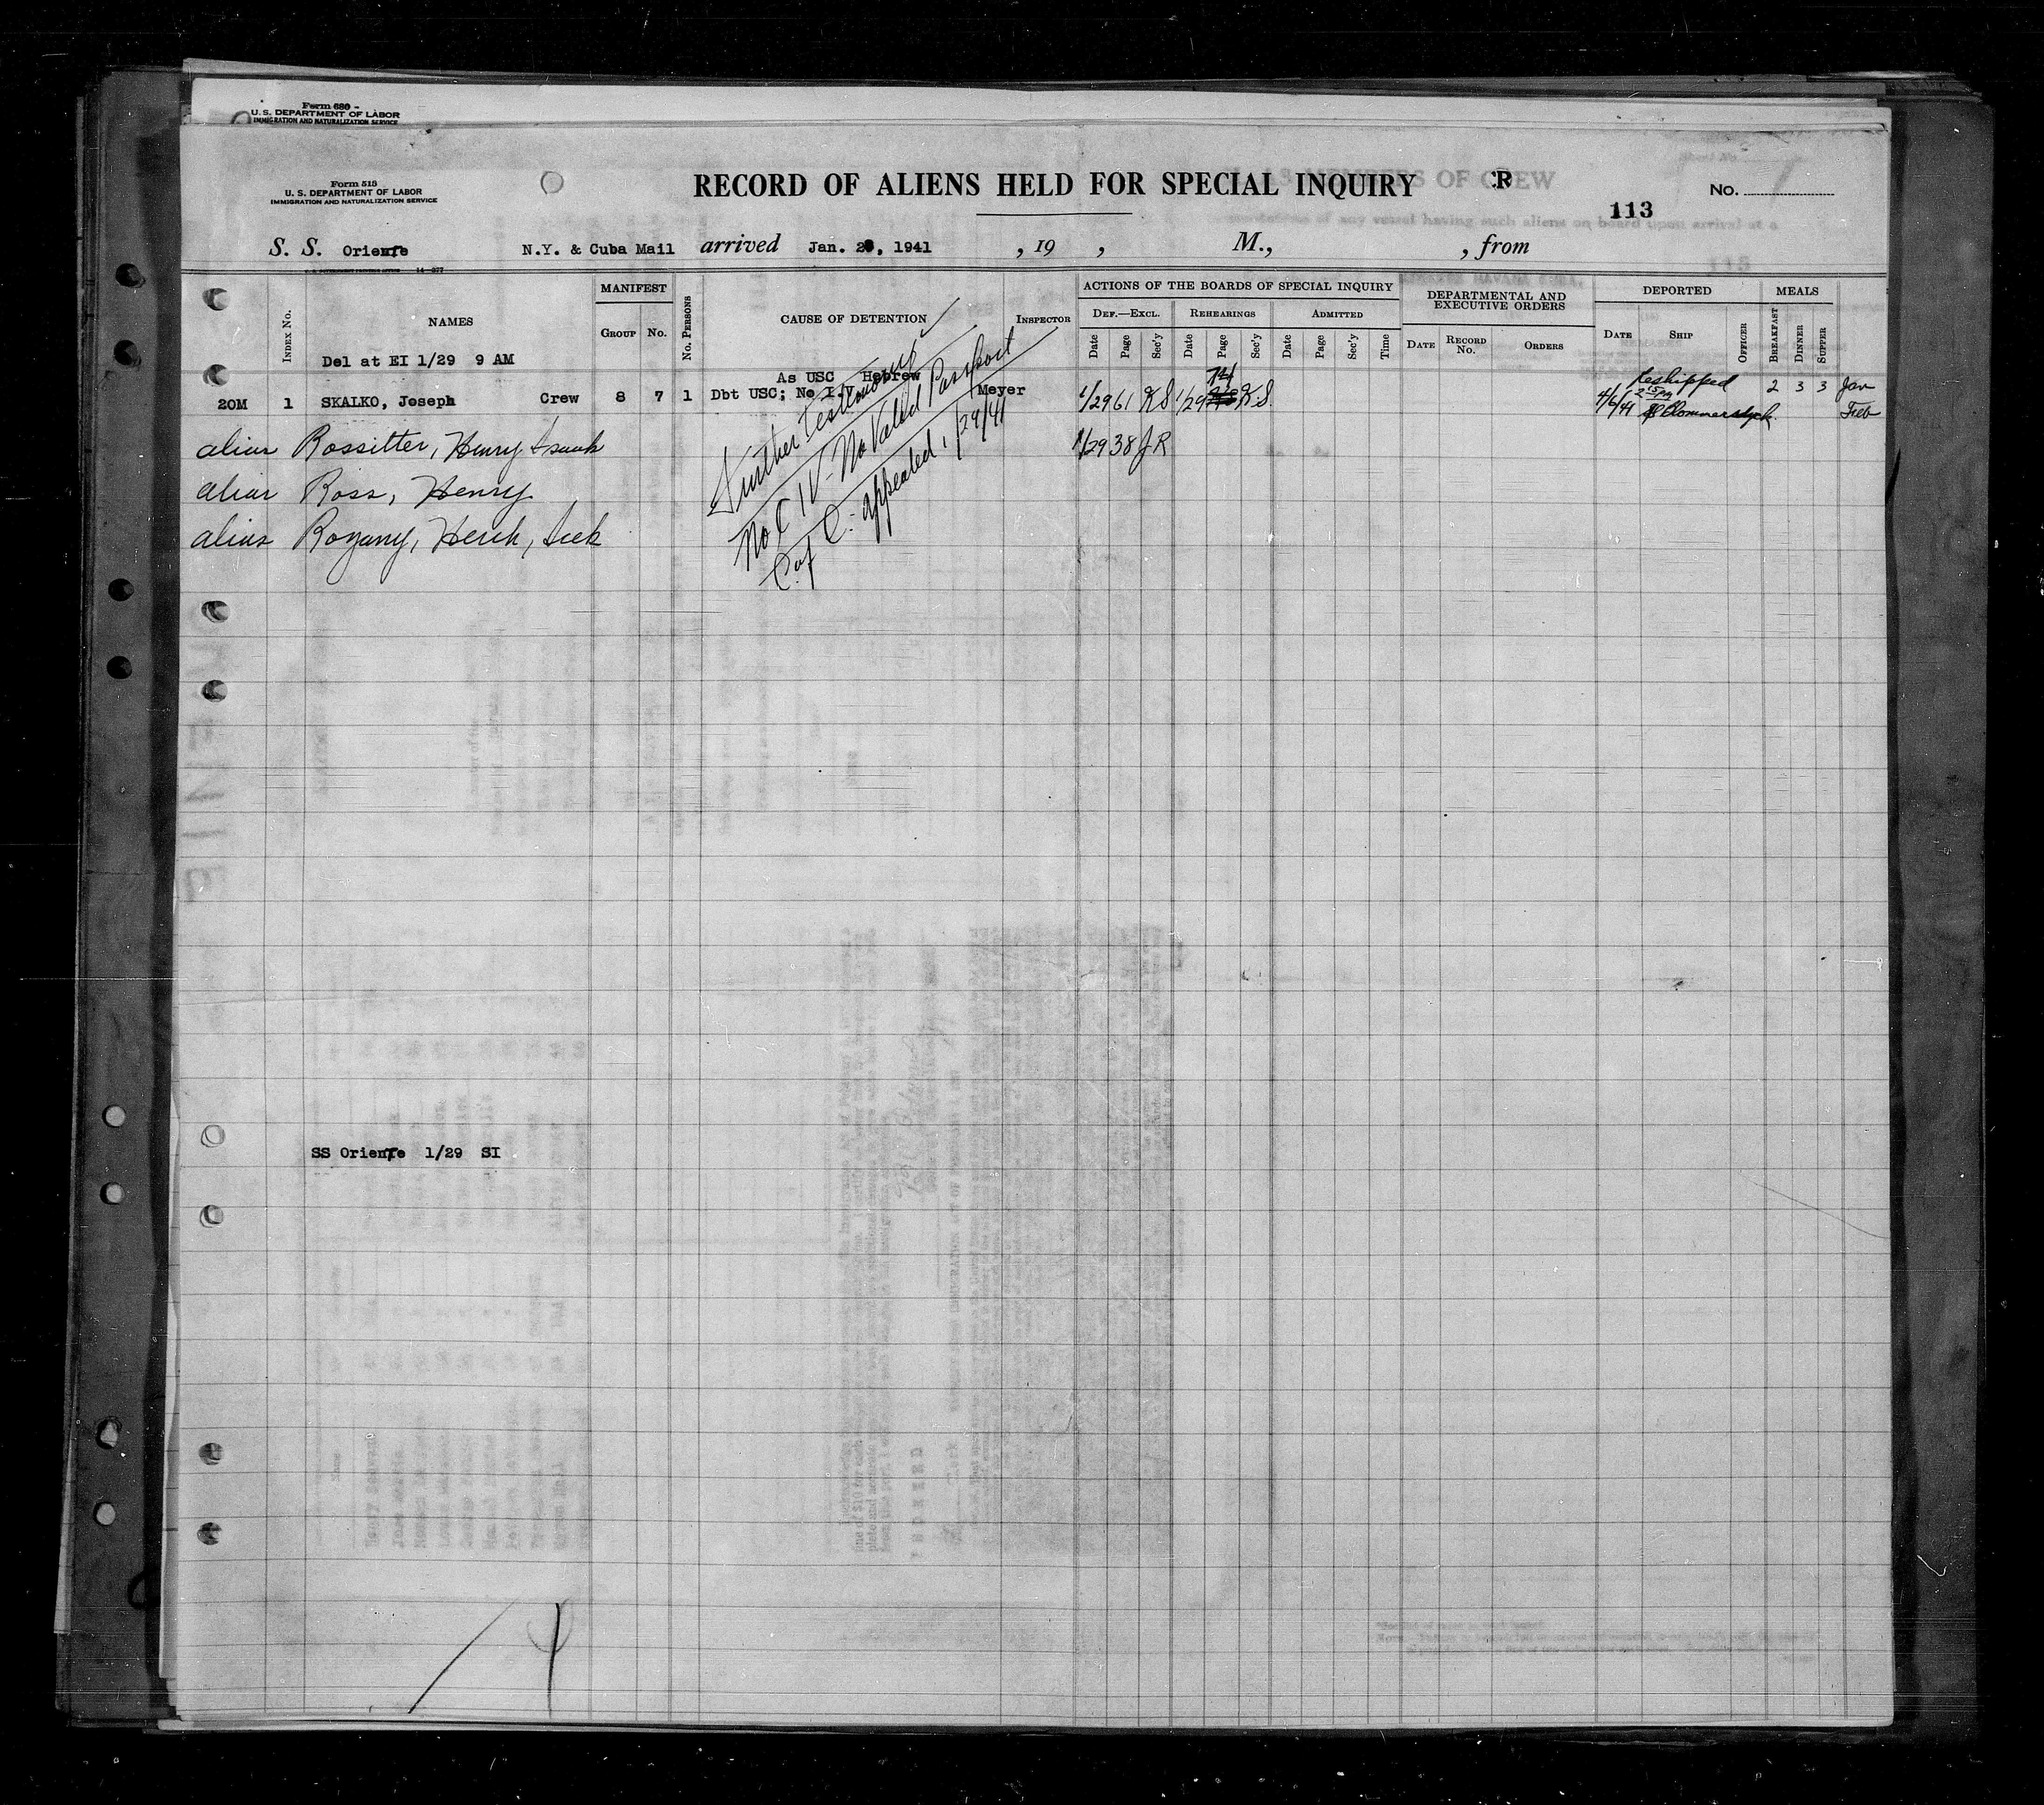 Form 680
U. S. DEPARTMENT OF LABOR
IMMIGRATION AND NATURALIZATION SERVICE
Form 518
U. S. DEPARTMENT OF LABOR
IMMIGRATION AND NATURALIZATION SERVICE
RECORD OF ALIENS HELD FOR SPECIAL INQUIRY
R
No.
113
S. S. Oriente N.Y. & Cuba Mail arrived Jan. 28, 1941 , 19 , M., , from
MANIFEST
ACTIONS OF THE BOARDS OF SPECIAL INQUIRY
DEPARTMENTAL AND EXECUTIVE ORDERS
DEPORTED
MEALS
Index No.
NAMES
Group
No.
No. Persons
CAUSE OF DETENTION
Inspector
Def.—Excl.
Rehearings
Admitted
Date Page Sec'y Date Page Sec'y Date Page Sec'y Time
Date Record No. Orders
Date Ship Officer
Breakfast Dinner Supper
Del at EI 1/29 9 AM
As USC Hebrew
20M 1 SKALKO, Joseph Crew 8 7 1 Dbt USC; No I.V. Meyer 1/29 61 K S 1/29 74 K.S. 4/6/41 Reshipped 2 15 PM 2 3 3 Jan
Feb
alias Rossitter, Henry
alias Ross, Henry
alias Rozany, Hersh,
1/29 38 J R
Further Testimony
No C IV - No Valid Passport
C. of C. - appealed 1/29/41
SS Oriente 1/29 SI